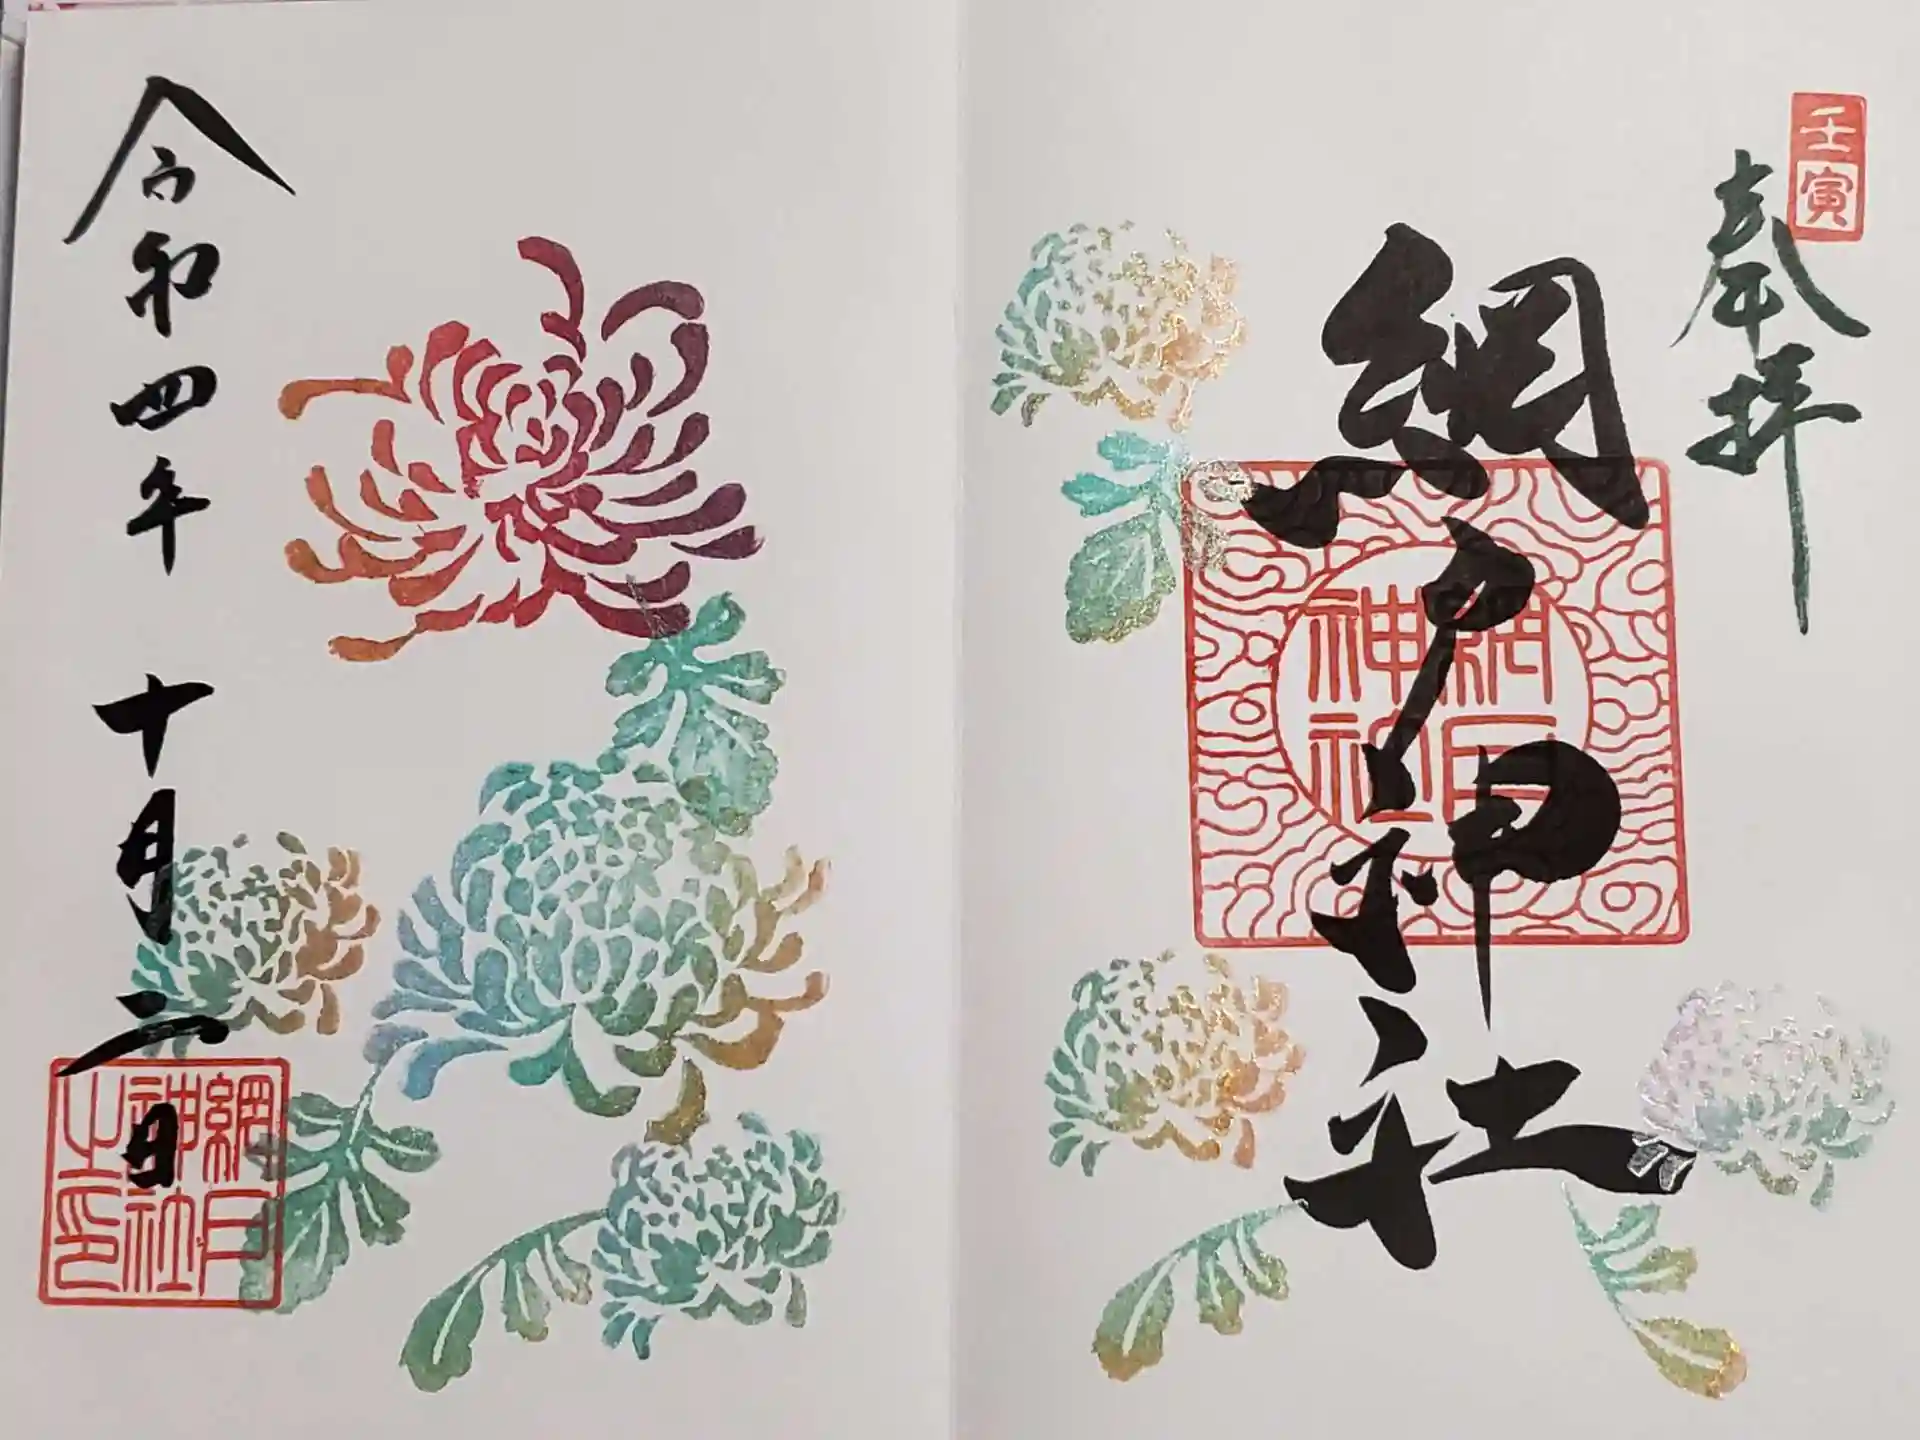 壬寅
奉拝
網戸神社
網戸神社
令和四年 十月二日
網戸神社之印